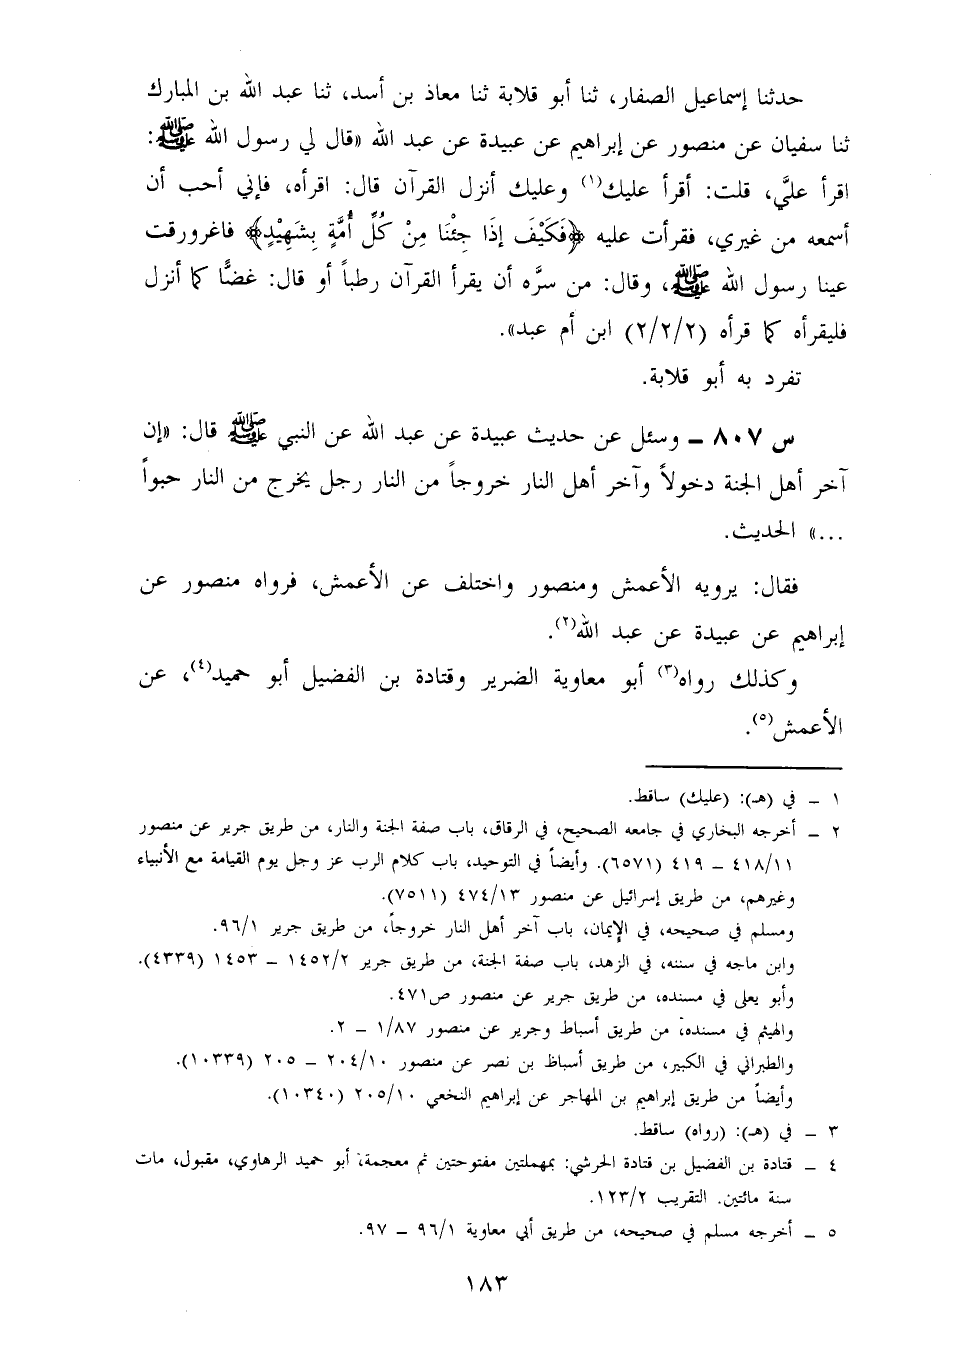 حدثنا إسماعيل الصفار، ثنا أبو قلابة ثنا معاذ بن أسد، ثنا عبد الله بن المبارك
ثنا سفيان عن منصور عن إبراهيم عن عبيدة عن عبد الله «قال لي رسول الله ﷺ:
اقرأ عليَّ، قلت: أقرأ عليك(١) وعليك أنزل القرآن قال: اقرأه، فإني أحب أن
أسمعه من غيري، فقرأت عليه ﴿فَكَيْفَ إِذَا جِئْنَا مِنْ كُلِّ أُمَّةٍ بِشَهِيْدٍ﴾ فاغرورقت
عينا رسول الله ﷺ، وقال: من سرَّه أن يقرأ القرآن رطباً أو قال: غضًّا كما أنزل
فليقرأه كما قرأه (٢/٢/٢) ابن أم عبد».
تفرد به أبو قلابة.
س ٨٠٧ ـ وسئل عن حديث عبيدة عن عبد الله عن النبي ﷺ قال: «إن
آخر أهل الجنة دخولاً وآخر أهل النار خروجاً من النار رجل يخرج من النار حبواً
...» الحديث.
فقال: يرويه الأعمش ومنصور واختلف عن الأعمش، فرواه منصور عن
إبراهيم عن عبيدة عن عبد الله(٢).
وكذلك رواه(٣) أبو معاوية الضرير وقتادة بن الفضيل أبو حميد(٤)، عن
الأعمش(٥).
١ ـ في (هـ): (عليك) ساقط.
٢ ـ أخرجه البخاري في جامعه الصحيح، في الرقاق، باب صفة الجنة والنار، من طريق جرير عن منصور
٤١٨/١١ ـ ٤١٩ (٦٥٧١). وأيضاً في التوحيد، باب كلام الرب عز وجل يوم القيامة مع الأنبياء
وغيرهم، من طريق إسرائيل عن منصور ٤٧٤/١٣ (٧٥١١).
ومسلم في صحيحه، في الإيمان، باب آخر أهل النار خروجاً، من طريق جرير ٩٦/١.
وابن ماجه في سننه، في الزهد، باب صفة الجنة، من طريق جرير ١٤٥٢/٢ ـ ١٤٥٣ (٤٣٣٩).
وأبو يعلى في مسنده، من طريق جرير عن منصور ص٤٧١.
والهيثم في مسنده، من طريق أسباط وجرير عن منصور ١/٨٧ ـ ٢.
والطبراني في الكبير، من طريق أسباظ بن نصر عن منصور ٢٠٤/١٠ ـ ٢٠٥ (١٠٣٣٩).
وأيضاً من طريق إبراهيم بن المهاجر عن إبراهيم النخعي ٢٠٥/١٠ (١٠٣٤٠).
٣ ـ في (هـ): (رواه) ساقط.
٤ ـ قتادة بن الفضيل بن قتادة الحرشي: بمهملتين مفتوحتين ثم معجمة، أبو حميد الرهاوي، مقبول، مات
سنة مائتين. التقريب ١٢٣/٢.
٥ ـ أخرجه مسلم في صحيحه، من طريق أبي معاوية ٩٦/١ ـ ٩٧.
١٨٣